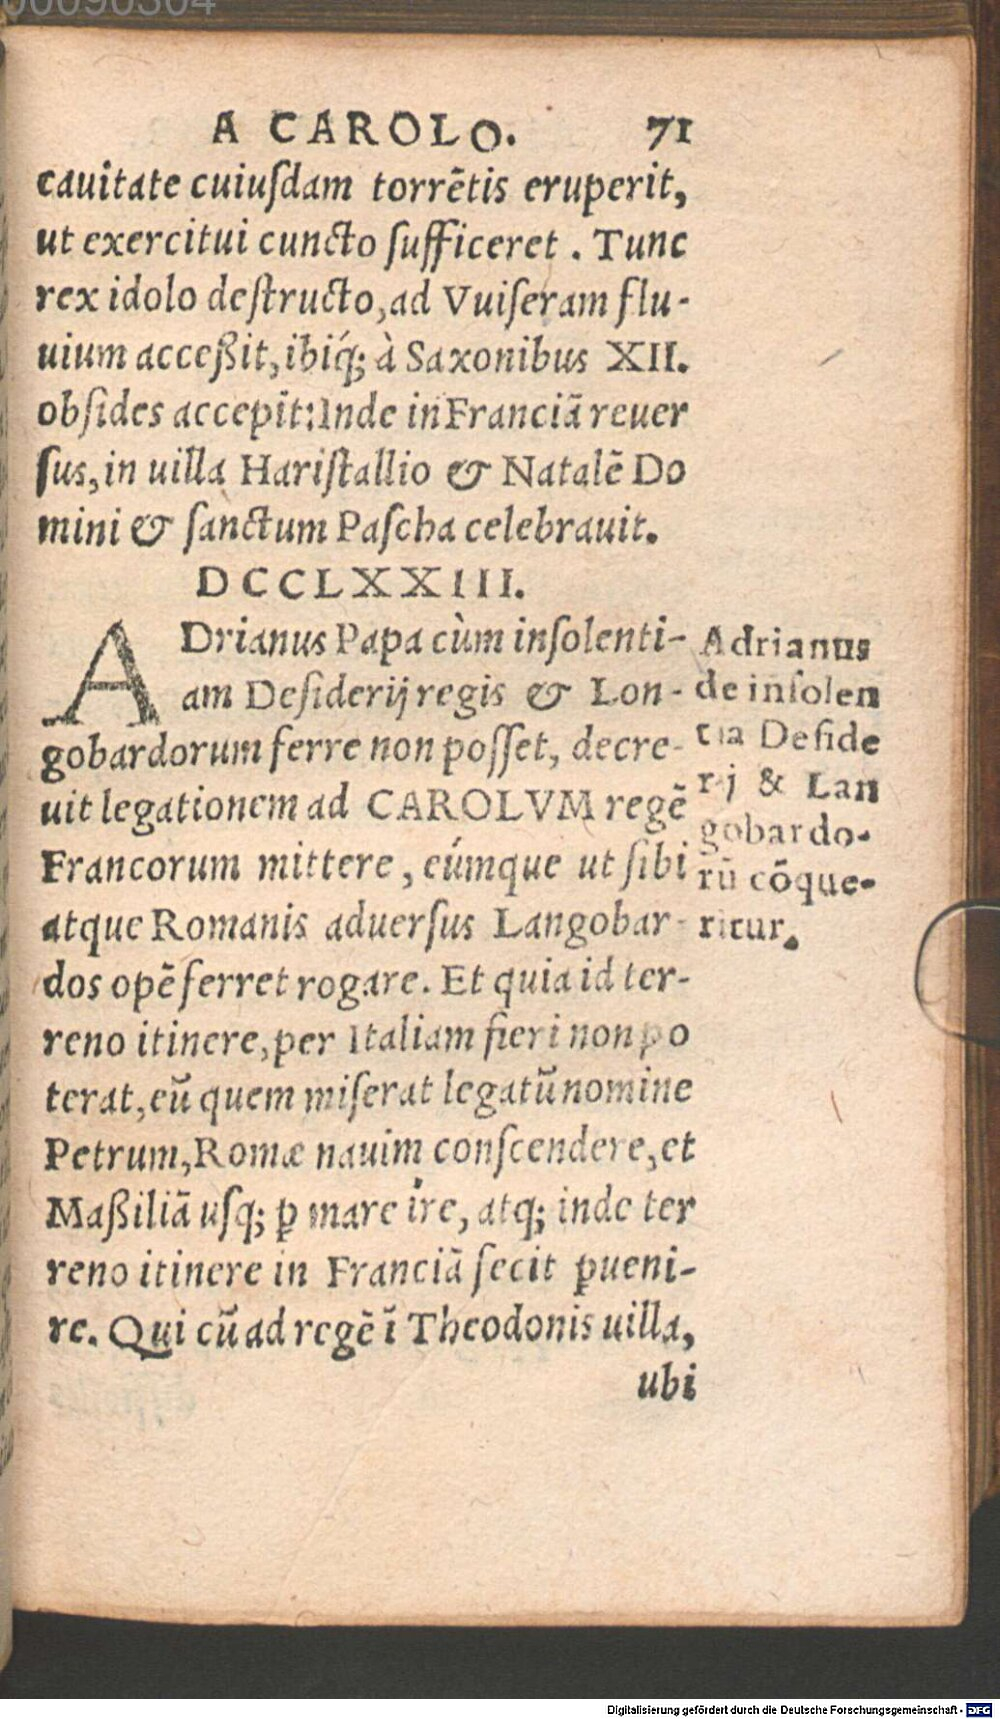 00090304
A CAROLO. 71
cauitate cuiusdam torrētis eruperit,
ut exercitui cuncto sufficeret. Tunc
rex idolo destructo, ad Vuiseram flu-
uium acceßit, ibiq́; à Saxonibus XII.
obsides accepit: Inde in Franciā reuer
sus, in uilla Haristallio & Natalē Do
mini & sanctum Pascha celebrauit.
DCCLXXIII.
ADrianus Papa cùm insolenti-
am Desiderij regis & Lon-
gobardorum ferre non posset, decre-
uit legationem ad CAROLVM regē
Francorum mittere, eúmque ut sibi
atque Romanis aduersus Langobar-
dos opē ferret rogare. Et quia id ter-
reno itinere, per Italiam fieri non po
terat, eū quem miserat legatū nomine
Petrum, Romæ nauim conscendere, et
Maßiliā usq; ꝑ mare ire, atq; inde ter
reno itinere in Franciā fecit ꝑueni-
re. Qui cū ad regē ī Theodonis uilla,
ubi
Adrianus
de insolen
tia Deside
rij & Lan
gobardo-
rū cōque-
ritur.
Digitalisierung gefördert durch die Deutsche Forschungsgemeinschaft - DFG